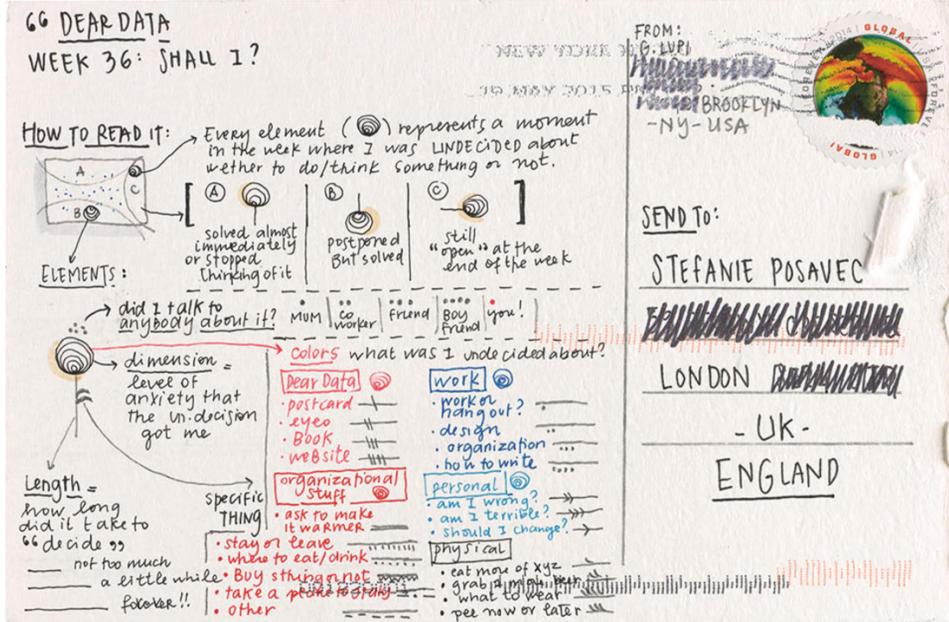 “ DEAR DATA
WEEK 36: SHALL I?
HOW TO READ IT:
Every element ( ) represents a moment
in the week where I was UNDECIDED about
wether to do/think something or not.
A
B
C
[ A
solved almost
immediately
or stopped
thinking of it
B
postponed
But solved
C ]
still
"open" at the
end of the week
ELEMENTS:
did I talk to
anybody about it?
MUM
co
worker
friend
Boy
friend
you!
dimension =
level of
anxiety that
the un.decision
got me
Length =
how long
did it take to
“ decide ”
not too much
a little while
forever!!
specific
THING
colors what was I undecided about?
Dear Data
· postcard
· eyeo
· Book
· website
organizational
stuff
· ask to make
it warmer
· stay or leave
· where to eat/drink
· Buy sthing or not
· take a
· other
work
· work or
hang out?
· design
· organization
· how to write
personal
· am I wrong?
· am I terrible?
· should I change?
physical
· eat more of xyz
· grab a
· what to wear
· pee now or later
FROM:
G. LUPI
BROOKLYN
- NY - USA
NEW YORK N
19 MAY 2015 P
GLOBAL
FOREVER
USA
FOREVER
GLOBAL
SEND TO:
STEFANIE POSAVEC
LONDON
- UK -
ENGLAND